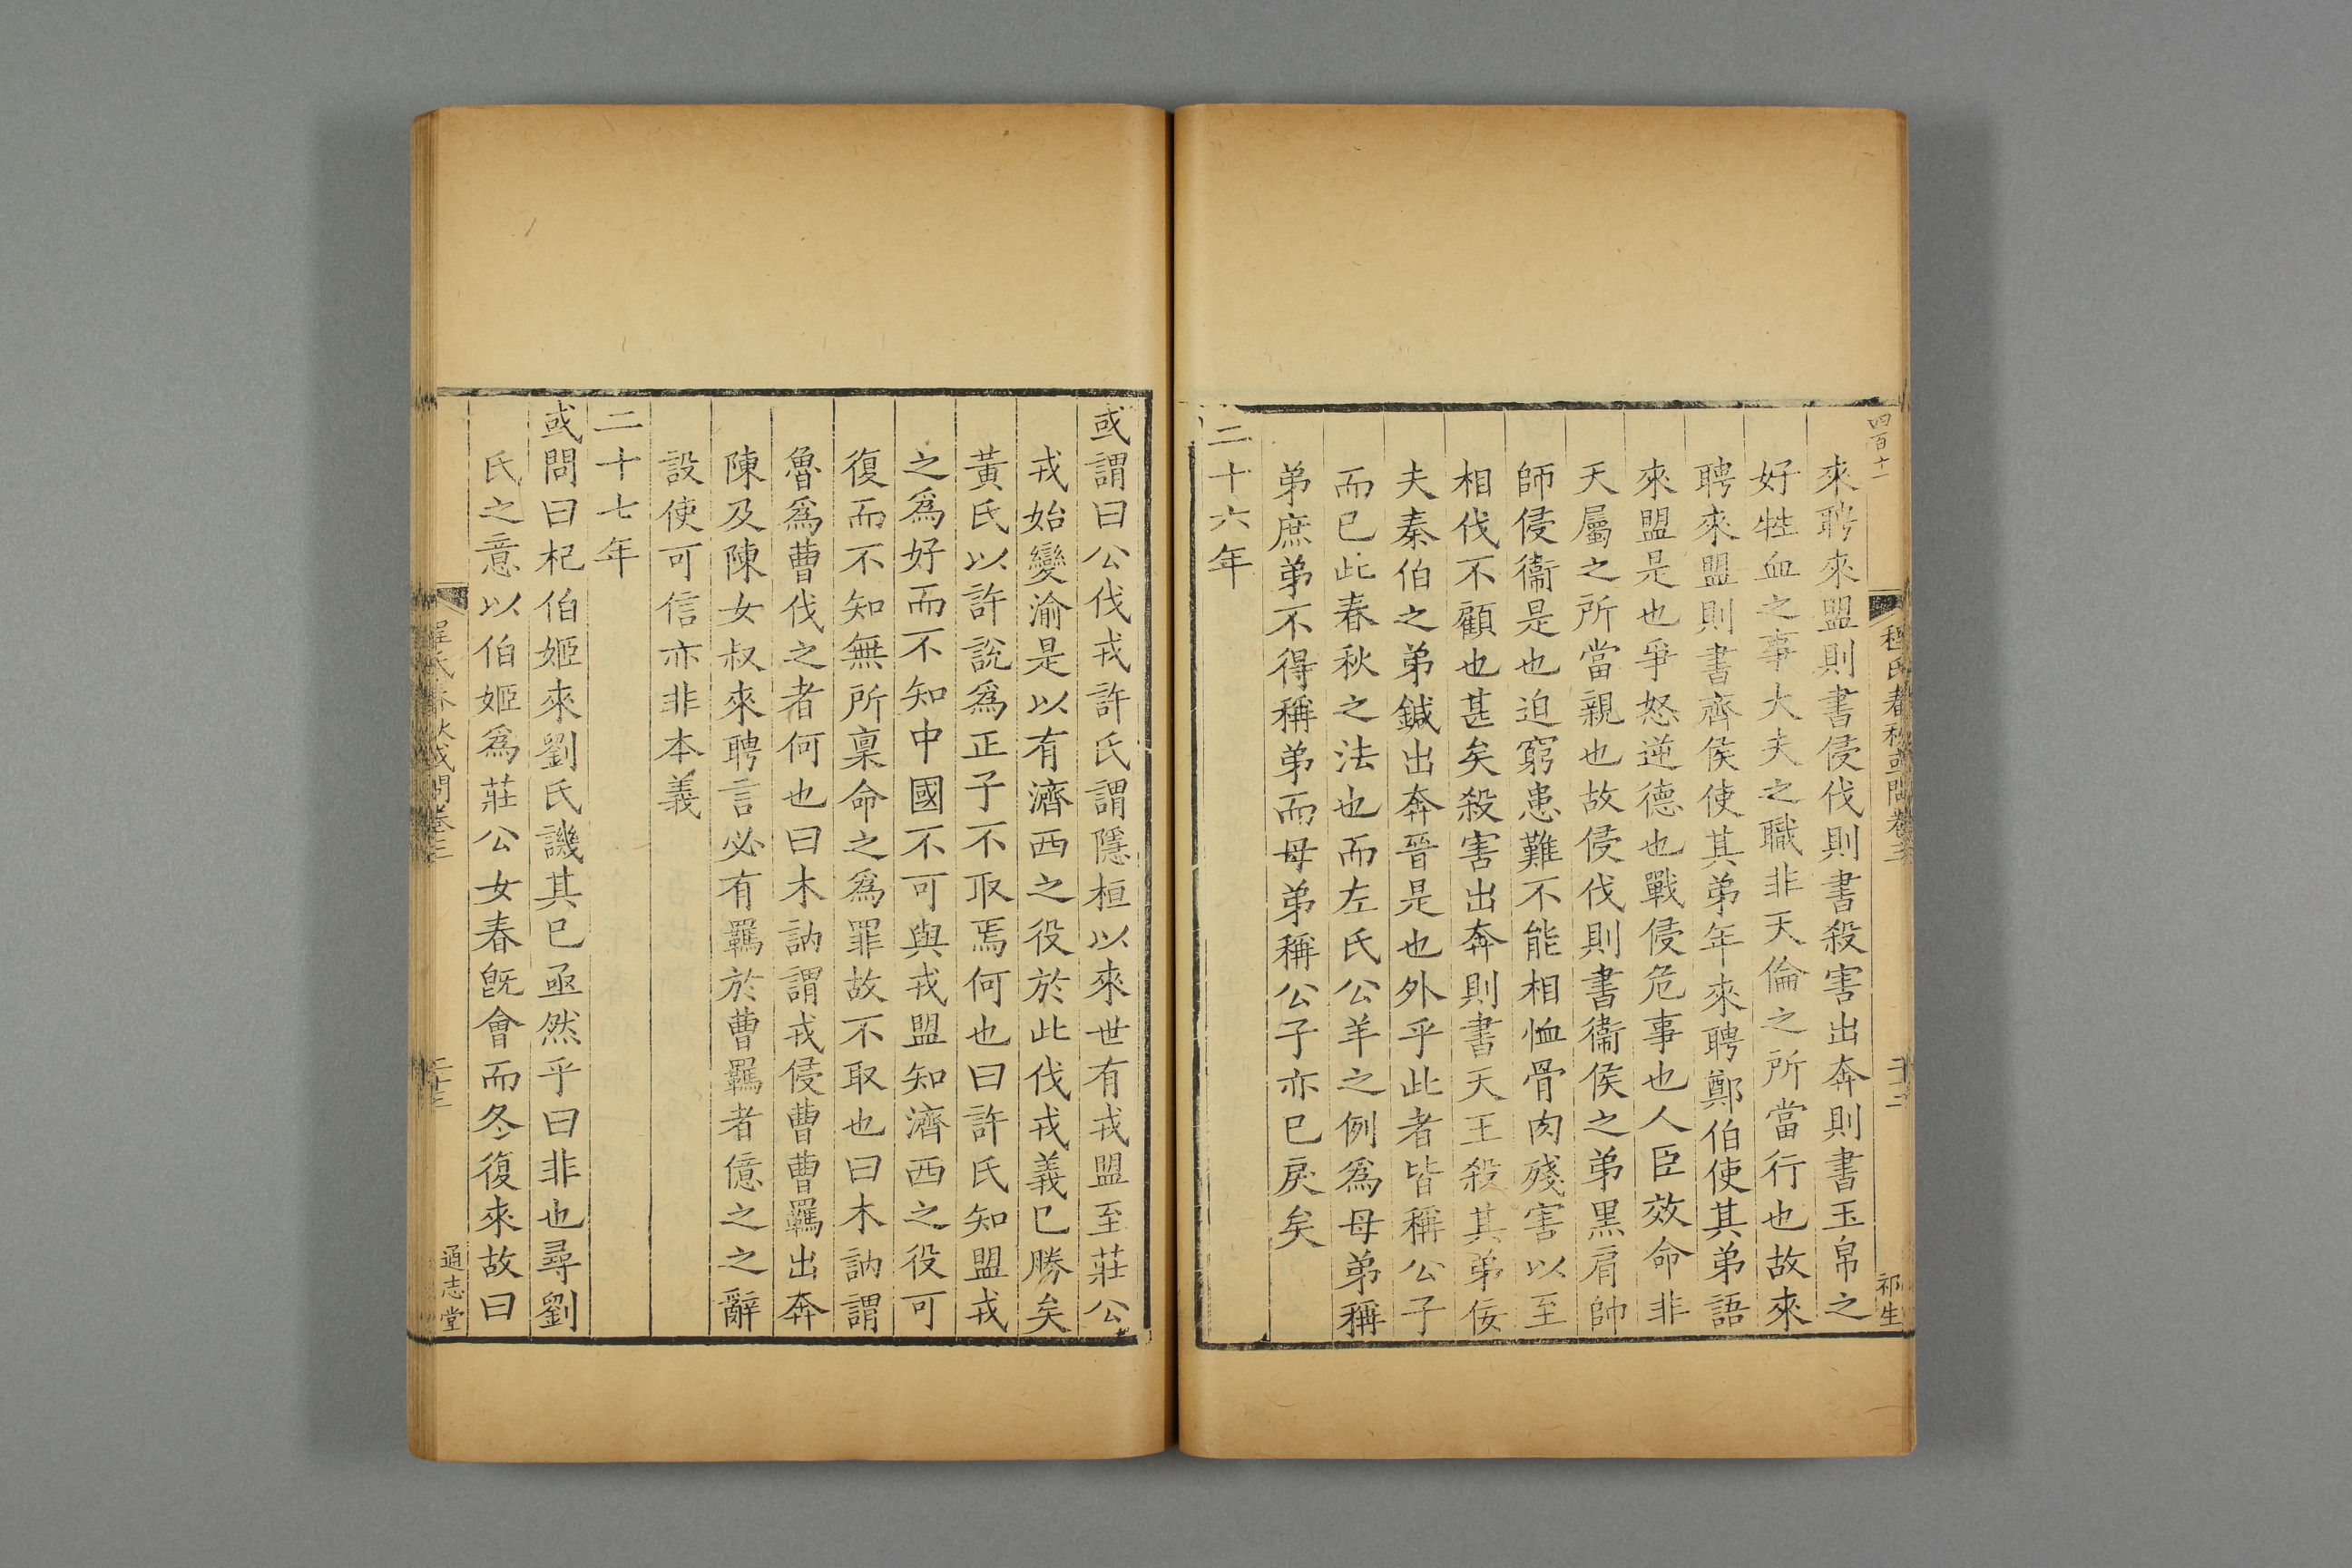 四百十一
程氏春秋或問卷三
二十二
祁生
來聘來盟則書侵伐則書殺害出奔則書玉帛之
好牲血之事大夫之職非天倫之所當行也故來
聘來盟則書齊侯使其弟年來聘鄭伯使其弟語
來盟是也爭怒逆德也戰侵危事也人臣效命非
天屬之所當親也故侵伐則書衞侯之弟黑肩帥
師侵衞是也迫窮患難不能相恤骨肉殘害以至
相伐不顧也甚矣殺害出奔則書天王殺其弟佞
夫秦伯之弟鍼出奔晉是也外乎此者皆稱公子
而已此春秋之法也而左氏公羊之例爲母弟稱
弟庶弟不得稱弟而母弟稱公子亦已戾矣
二十六年
或謂曰公伐戎許氏謂隱桓以來世有戎盟至莊公
戎始變渝是以有濟西之役於此伐戎義已勝矣
黃氏以許說爲正子不取焉何也曰許氏知盟戎
之爲好而不知中國不可與戎盟知濟西之役可
復而不知無所稟命之爲罪故不取也曰木訥謂
魯爲曹伐之者何也曰木訥謂戎侵曹曹羈出奔
陳及陳女叔來聘言必有羈於曹羈者億之之辭
設使可信亦非本義
二十七年
或問曰杞伯姬來劉氏譏其已亟然乎曰非也尋劉
氏之意以伯姬爲莊公女春旣會而冬復來故曰
程氏春秋或問卷三
二十三
通志堂